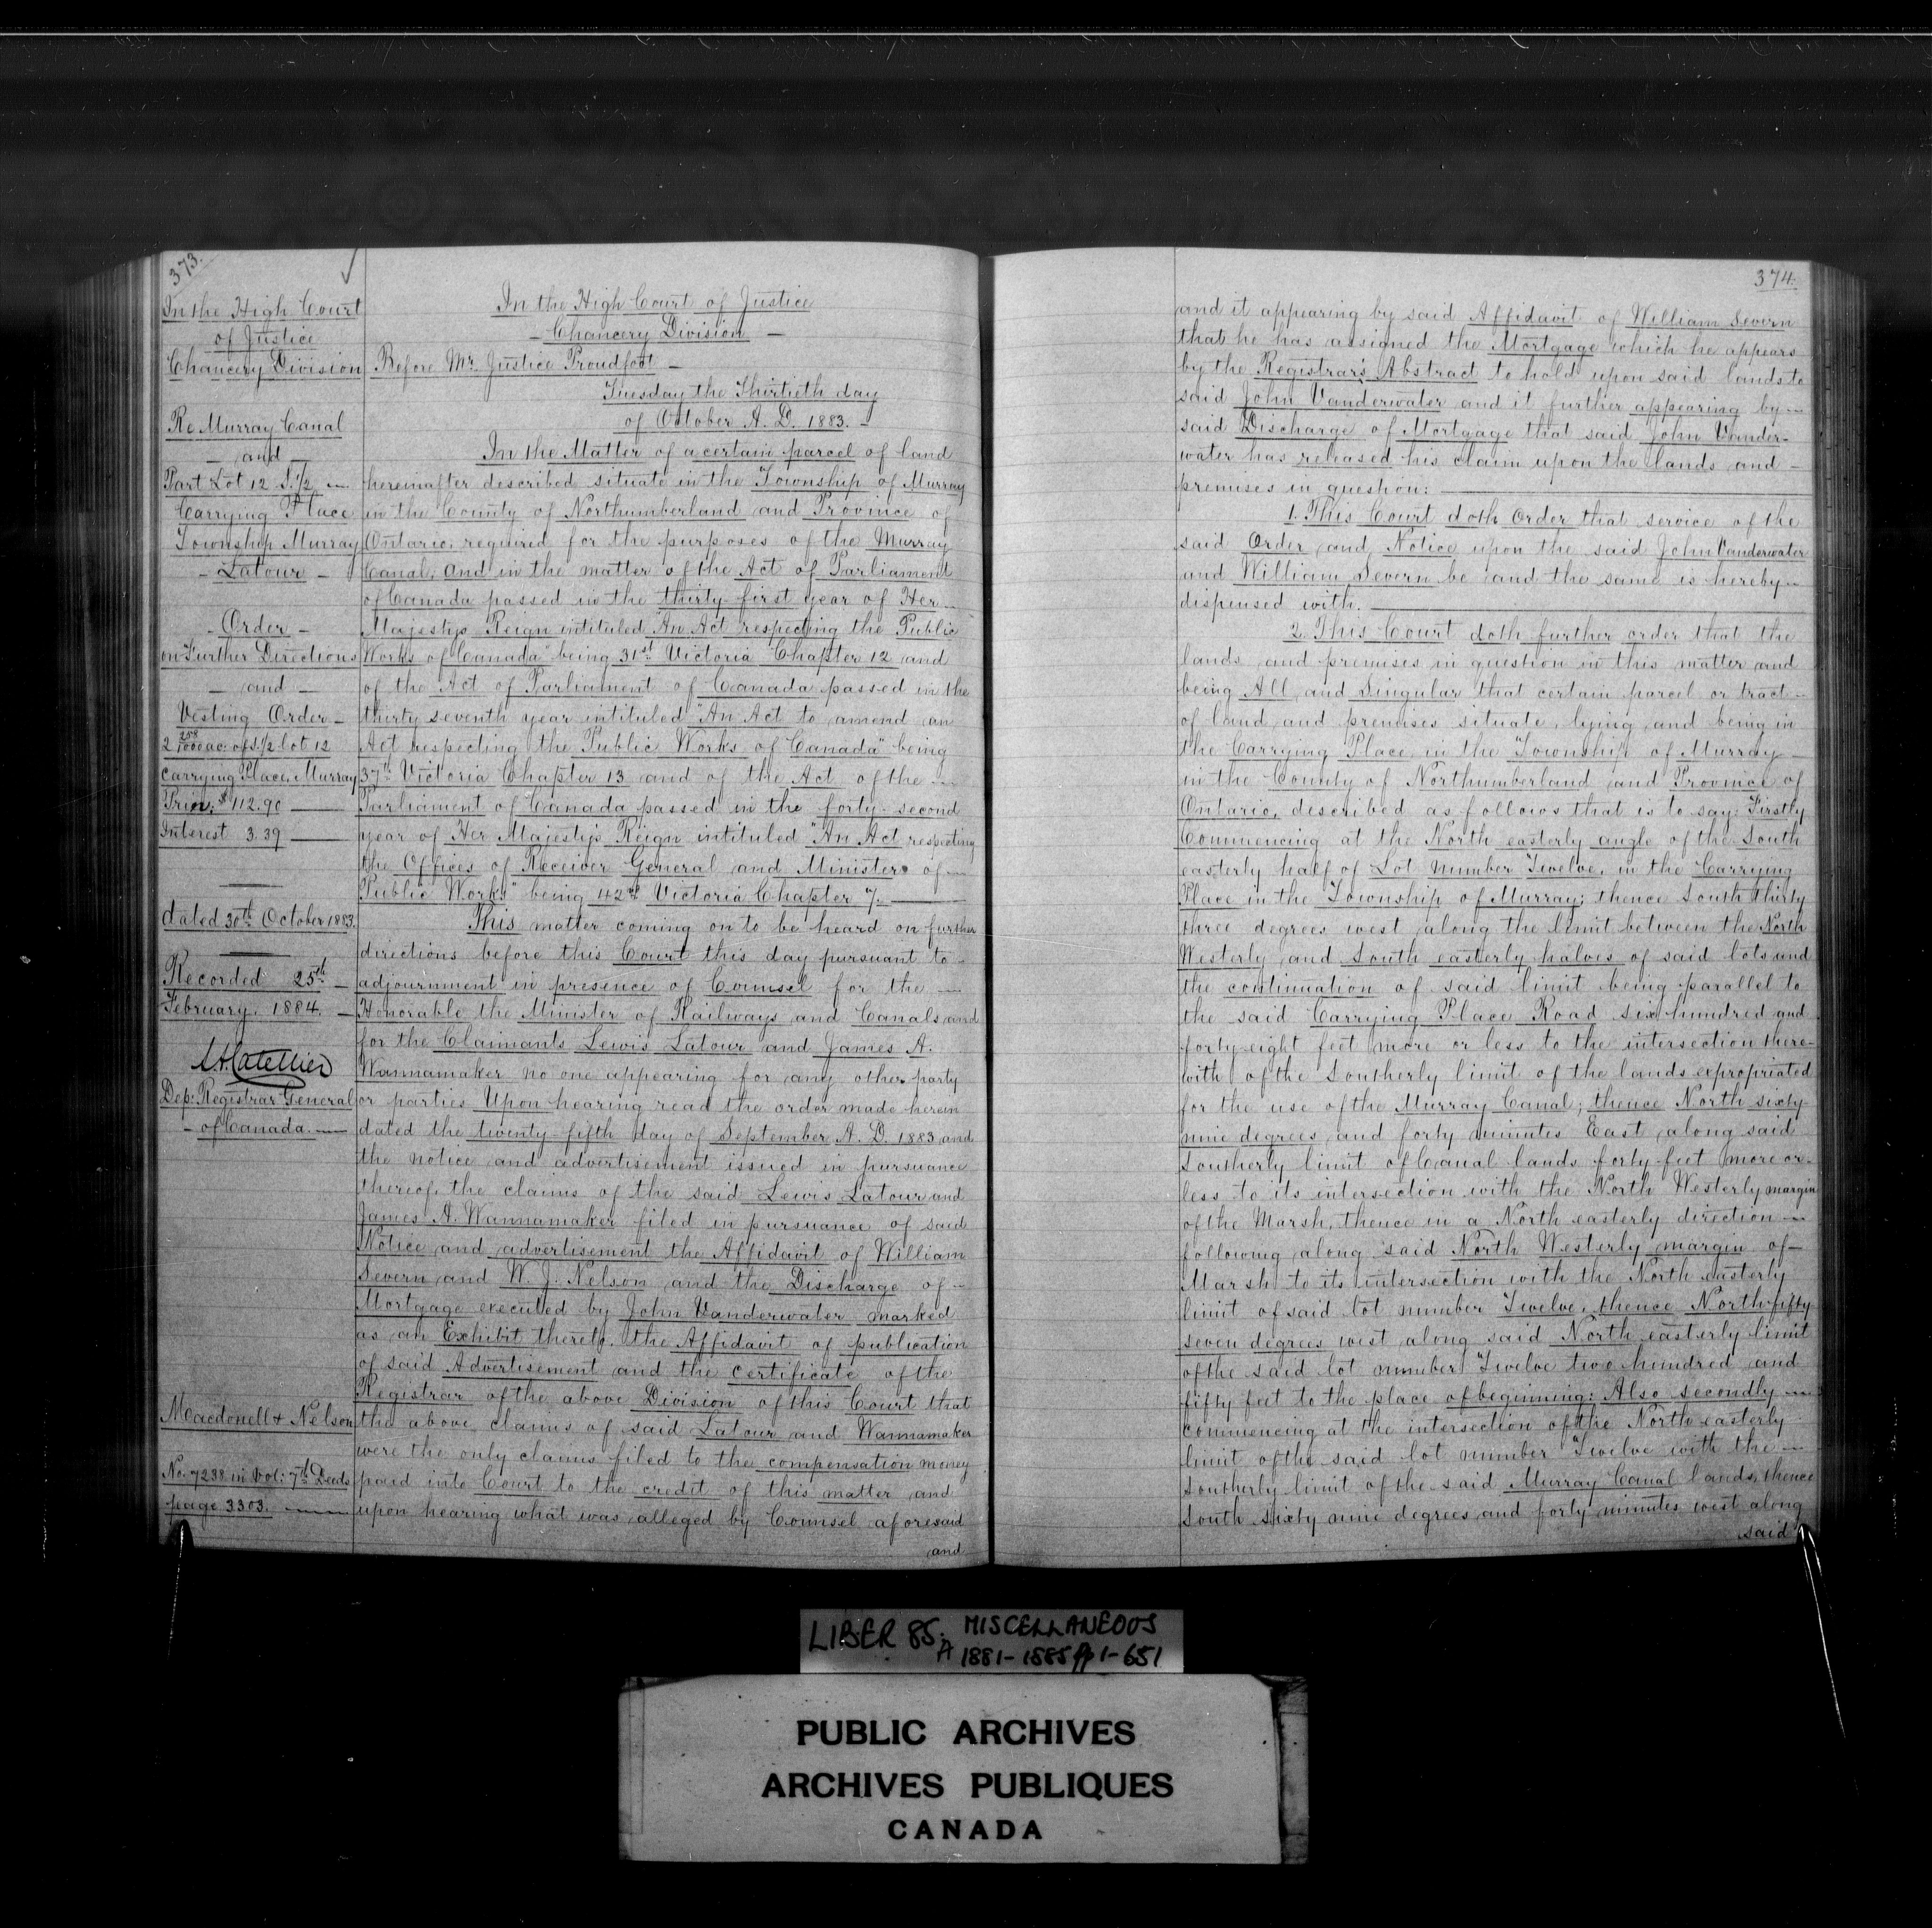 373.
In the High Court
of Justice
Chancery Division
Re Murray Canal
- and -
Part Lot 12 S. 1/2 -
Carrying Place
Township Murray
- Latour -
- Order -
on Further Directions
- and -
Vesting Order -
2 258/1000 ac: of S. 1/2 lot 12
Carrying Place, Murray
Price: $112.90
Interest 3.39
dated 30th October 1883.
Recorded 25th -
February, 1884. -
Dep: Registrar General
- of Canada. -
Macdonell & Nelson
No. 7238 in Vol: 7th Deeds
page 3303.
In the High Court of Justice
- Chancery Division -
Before Mr. Justice Proudfoot -
Tuesday the Thirtieth day
of October A. D. 1883. -
In the Matter of a certain parcel of land
hereinafter described situate in the Township of Murray
in the County of Northumberland and Province of
Ontario, required for the purposes of the Murray
Canal, and in the matter of the Act of Parliament
of Canada passed in the thirty first year of Her
Majesty's Reign intituled "An Act respecting the Public
Works of Canada" being 31st Victoria Chapter 12 and
of the Act of Parliament of Canada passed in the
thirty seventh year intituled "An Act to amend an
Act respecting the Public Works of Canada" being
37th Victoria Chapter 13 and of the Act of the -
Parliament of Canada passed in the forty-second
year of Her Majesty's Reign intituled "An Act respecting
the Offices of Receiver General and Minister of -
Public Works" being 42nd Victoria Chapter 7.
This matter coming on to be heard on further
directions before this Court this day pursuant to -
adjournment in presence of Counsel for the -
Honorable the Minister of Railways and Canals and
for the Claimants Lewis Latour and James A.
Wannamaker no one appearing for any other party
or parties Upon hearing read the order made herein
dated the twenty-fifth day of September A. D. 1883 and
the notice and advertisement issued in pursuance
thereof, the claims of the said Lewis Latour and
James A. Wannamaker filed in pursuance of said
Notice and advertisement the Affidavit of William
Severn and W. J. Nelson and the Discharge of -
Mortgage executed by John Vanderwater marked
as an Exhibit thereto. the Affidavit of publication
of said Advertisement and the certificate of the
Registrar of the above Division of this Court that
the above claims of said Latour and Wannamaker
were the only claims filed to the compensation money
paid into Court to the credit of this matter and
upon hearing what was alleged by Counsel aforesaid
and
374.
and it appearing by said Affidavit of William Severn
that he has assigned the Mortgage which he appears
by the Registrar's Abstract to hold upon said lands to
said John Vanderwater and it further appearing by -
said Discharge of Mortgage that said John Vander-
water has released his claim upon the lands and -
premises in question:
1. This Court doth Order that service of the
said Order and Notice upon the said John Vanderwater
and William Severn be and the same is hereby -
dispensed with.
2. This Court doth further order that the
lands and premises in question in this matter and
being All and Singular that certain parcel or tract -
of land and premises situate, lying and being in
the Carrying Place in the Township of Murray -
in the County of Northumberland and Province of
Ontario, described as follows that is to say: Firstly
Commencing at the North easterly angle of the South
easterly half of Lot number Twelve, in the Carrying
Place in the Township of Murray; thence South thirty
three degrees west along the limit between the North
Westerly and South easterly halves of said lots and
the continuation of said limit being parallel to
the said Carrying Place Road six hundred and
forty eight feet more or less to the intersection there-
with of the Southerly limit of the lands expropriated
for the use of the Murray Canal; thence North sixty-
nine degrees and forty minutes East along said
Southerly limit of Canal lands forty feet more or -
less to its intersection with the North Westerly margin
of the Marsh, thence in a North easterly direction -
following along said North Westerly margin of -
Marsh to its intersection with the North easterly
limit of said lot number Twelve, thence North fifty-
seven degrees west along said North easterly limit
of the said lot number Twelve two hundred and
fifty feet to the place of beginning: Also secondly -
commencing at the intersection of the North easterly
limit of the said lot number Twelve with the -
Southerly limit of the said Murray Canal lands, thence
South sixty nine degrees and forty minutes west along
said
LIBER 85. MISCELLANEOUS
A 1881-1885 pp 1-651
PUBLIC ARCHIVES
ARCHIVES PUBLIQUES
CANADA